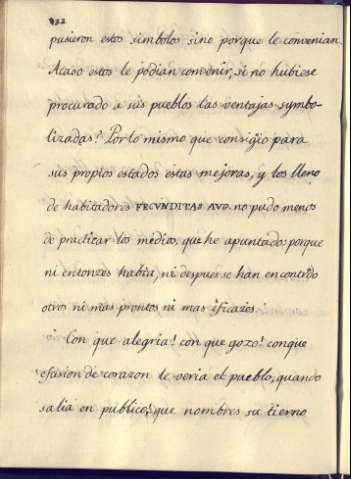 pusieron estos simbolos sino porque le convenian.
Acaso estos le podian convenir, si no hubiese
procurado a sus pueblos las ventajas symbo-
lizadas? Por lo mismo que consigio para
sus propios estados estas mejoras, y los lleno
de habitadores FECUNDITAS AUG. no pudo menos
de practicar los medios, que he apuntado: porque
ni entonzes habia, ni despues se han encontrado
otros ni mas prontos ni mas eficazes.
Con que alegria! con que gozo! conque
efusion de corazon le veria el pueblo, quando
salia en publico! que nombres su tierno